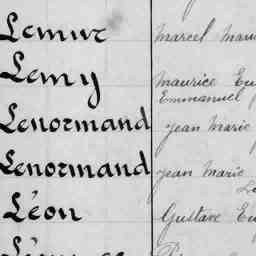 Lemur Marcel
Lemy Maurice
Emmanuel
Lenormand Jean Marie
Lenormand Jean Marie
Léon Gustave